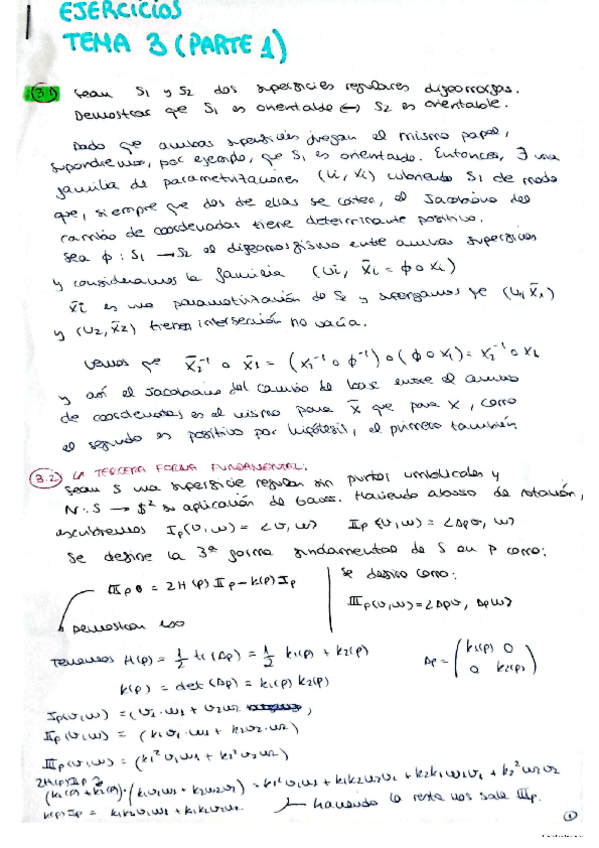 EJERCICIOS
TEMA 3 (PARTE 1)
3.1 Sean S1 y S2 dos superficies regulares difeomorfas.
Demostrar que S1 es orientable ↔ S2 es orientable.
Dado que ambas superficies juegan el mismo papel,
supondremos, por ejemplo, que S1 es orientado. Entonces, ∃ una
familia de parametrizaciones (Ui, Xi) cubriendo S1 de modo
que, siempre que dos de ellas se corten, el Jacobiano del
cambio de coordenadas tiene determinante positivo.
Sea ϕ: S1 → S2 el difeomorfismo entre ambas superficies
y consideramos la familia (Ui, x̄i = ϕ o xi)
x̄i es una parametrización de S2 y supongamos que (U1, x̄1)
y (U2, x̄2) tienen intersección no vacía.
Vemos que x̄2⁻¹ o x̄1 = (x2⁻¹ o ϕ⁻¹) o (ϕ o x1) = x2⁻¹ o x1
y así el Jacobiano del cambio de base entre el cambio
de coordenadas es el mismo para x̄ que para x, como
el segundo es positivo por hipótesis, el primero también
3.2 LA TERCERA FORMA FUNDAMENTAL.
Sean S una superficie regular sin puntos umbilicales y
N: S → $² su aplicación de Gauss. Haciendo abuso de notación,
escribiremos Ip(v,w) = <v, w> IIp (v,w) = <Apv, w>
Se define la 3ª forma fundamental de S en p como:
IIIp = 2H(p) IIp - k(p) Ip
Se define como:
IIIp(v,w) = <Apv, Apw>
Demostrar eso
Tenemos H(p) = 1/2 tr(Ap) = 1/2 k1(p) + k2(p)
Ap = (k1(p) 0
0 k2(p))
k(p) = det(Ap) = k1(p) k2(p)
Ip(v,w) = (v1·w1 + v2w2),
IIp(v,w) = (k1v1·w1 + k2v2·w2)
IIIp(v,w) = (k1²v1w1 + k2²v2w2)
2H(p)IIp
(k1(p) + k2(p))·(k1v1w1 + k2w2v2) = k1²v1w1 + k1k2w2v2 + k2k1w1v1 + k2²w2v2
k(p)Ip = k1k2v1w1 + k1k2v2w2
haciendo la resta nos sale IIIp.
1